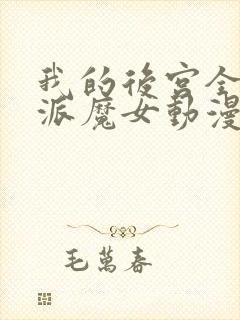 我的後宮全
派魔女動漫
毛萬春